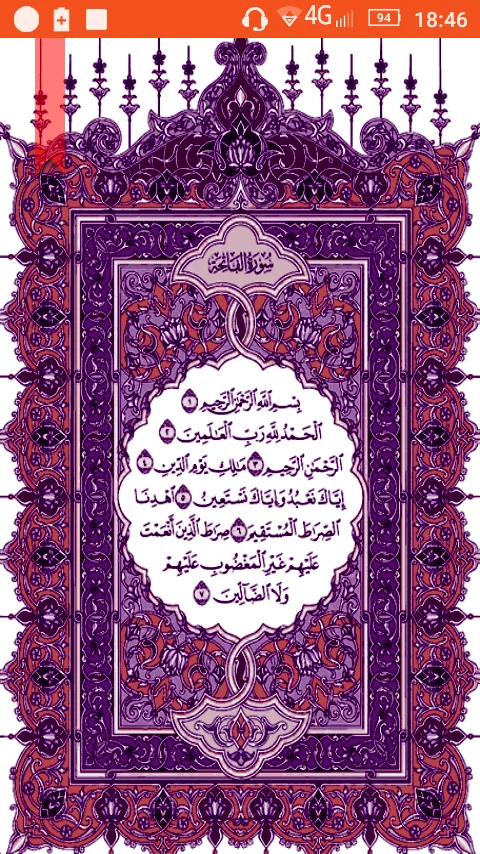 4G 94 18:46
سُورَةُ الفَاتِحَةِ
بِسْمِ اللَّهِ الرَّحْمَٰنِ الرَّحِيمِ ١
الْحَمْدُ لِلَّهِ رَبِّ الْعَالَمِينَ ٢
الرَّحْمَٰنِ الرَّحِيمِ ٣ مَالِكِ يَوْمِ الدِّينِ ٤
إِيَّاكَ نَعْبُدُ وَإِيَّاكَ نَسْتَعِينُ ٥ اهْدِنَا
الصِّرَاطَ الْمُسْتَقِيمَ ٦ صِرَاطَ الَّذِينَ أَنْعَمْتَ
عَلَيْهِمْ غَيْرِ الْمَغْضُوبِ عَلَيْهِمْ
وَلَا الضَّالِّينَ ٧